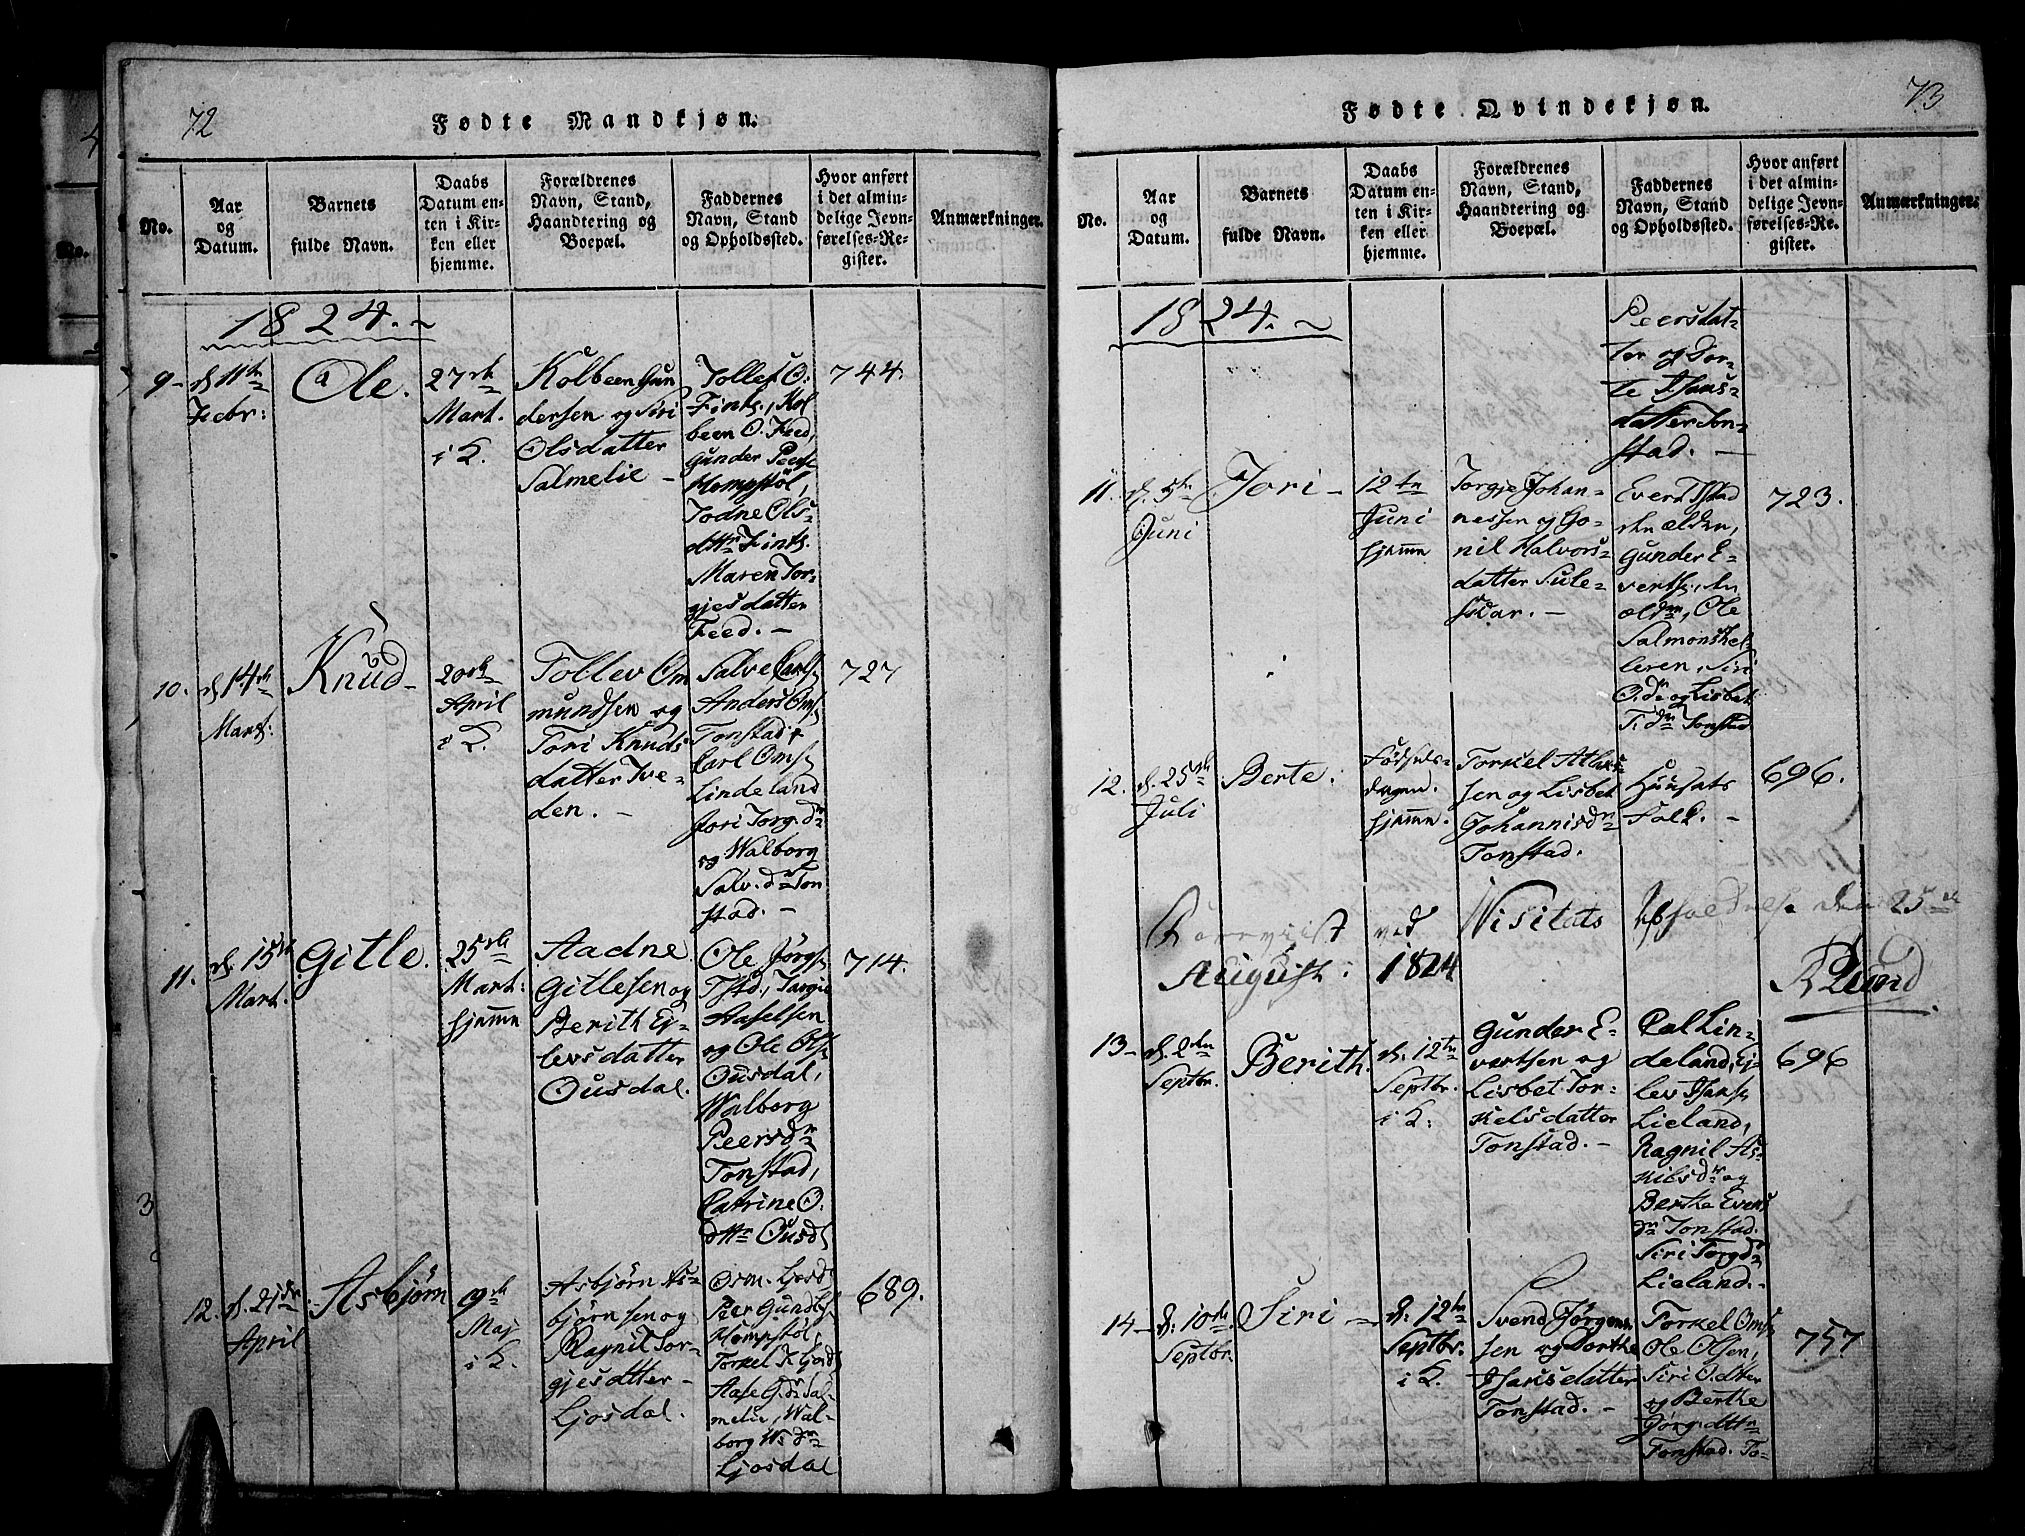 72
Fødte Mandkjøn.
No.
Aar
og
Datum.
Barnets
fulde Navn.
Daabs
Datum en-
ten i Kir-
ken eller
hjemme.
Forældrenes
Navn, Stand,
Haandtering og
Boepæl.
Faddernes
Navn, Stand
og Opholdssted.
Hvor anført
i det almin-
delige Jevn-
førelses-Re-
gister.
Anmærkninger.
1824.
9-
d. 11te
Febr:
Ole.
27de
Mart.
i K.
Kolbeen Gun
dersen og Siri
Olsdatter
Salmelie -
Tollef O.
Fints., Kol
been O. Feed,
Gunder Peers.
Hompstøl,
Todne Ols-
dttr Fints.
Maren Tor-
gjesdatter
Feed. -
744.
10.
d. 14de
Marts:
Knud
20de
April
i K.
Tollev Om
mundsen og
Tori Knuds
datter Tve-
den. -
Salve Carls.
Anders Oms.
Tonstad,
Carl Oms.
Lindeland
Jori Torg.dr
og Walborg
Salv.dr Ton
stad. -
727
11.
d. 15de
Mart.
Gitle.
25de
Mart:
hjemme
Aadne
Gitlesen og
Berith Ej-
levsdatter
Ousdal.
Ole Jørgs.
Tstd., Targie
Aaselsen
og Ole Ols.
Ousdal,
Walborg
Peersdr
Tonstad,
Catrine O.
dttr Ousd.
714.
12.
d. 21de
April
Asbjørn
9de
Maj
i K.
Asbjørn As-
bjørnsen og
Ragnil Tor-
gjesdtter
Ljosdal.
Osm. Ljosd.
Peer Gunds.
Hompstøl,
Torkel K. Ljosd.
Aase G.dr Sal-
melie, Wal-
borg W.dr
Ljosdal
689.
73
Fødte Qvindekjøn.
No.
Aar
og
Datum.
Barnets
fulde Navn.
Daabs
Datum en-
ten i Kir-
ken eller
hjemme.
Forældrenes
Navn, Stand,
Haandtering og
Boepæl.
Faddernes
Navn, Stand
og Opholdssted.
Hvor anført
i det almin-
delige Jevn-
førelses-Re-
gister.
Anmærkninger.
1824.
Peersdat-
ter og Dor-
te Hans-
datter Ton-
stad. -
11.
d. 5te
Juni
Jori -
12te
Juni
hjemme
Torgje Johan-
nessen og Go-
nil Halvors-
datter Sule-
skar. -
Evert Tstad
den ælder,
Gunder E-
verts., den
ældr, Ole
Salmonskel-
leren, Siri
O.dr og Lisbet
T.dr Tonstad
723.
12.
d. 25de
Juli
Berte.
Fødsels-
dagen.
hjemme.
Torkel Atlak-
sen og Lisbet
Johannisdr
Tonstad.
Huusets
Folk. -
696.
ved Visitats den 25de
August 1824
13-
d. 2den
Septbr.
Berith.
d. 12te
Septbr.
i K:
Gunder E-
vertsen og
Lisbet Tor-
kelsdatter
Tonstad. -
Carl Lin-
deland, Ej-
lev Hans.
Lieland,
Ragnil As-
kilsdr og
Berthe Everts
dr Tonstad.
Siri Torgdr
Lieland.-
696
14-
d: 10de
Septbr.
Siri -
d: 12te
Septbr.
i K.
Svend Jørgen-
sen og Dorthe
Hansdatter
Tonstad. -
Torkel Oms.
Ole Olsen,
Siri O.dtter
og Berthe
Jørg.dttr
Tonstad. To-
757